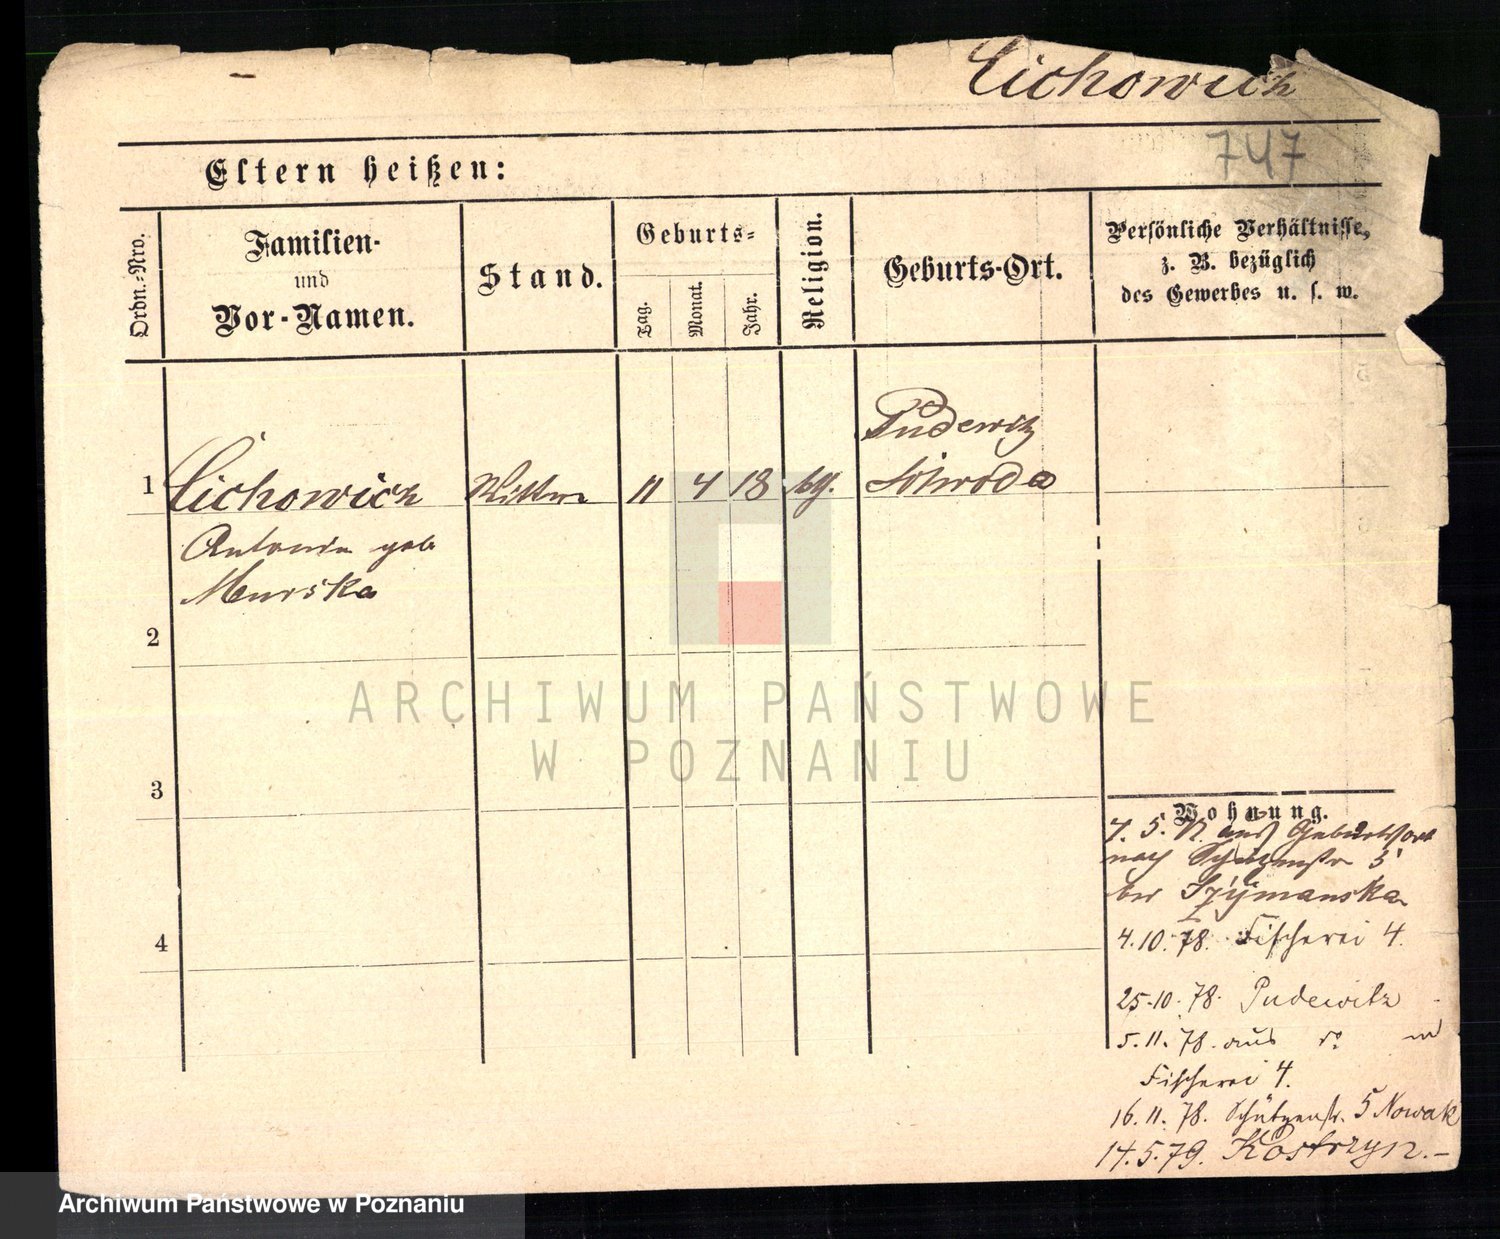 Cichowicz
747
Eltern heißen:
Ordn.-Nro.
Familien-
und
Vor-Namen.
Stand.
Geburts-
Tag.
Monat.
Jahr.
Religion.
Geburts-Ort.
Persönliche Verhältnisse,
z. B. bezüglich
des Gewerbes u. s. w.
1 Cichowicz Wittwe 11 4 18 Pudewitz
Schroda
Antonia geb
Murska
2
3
4
Wohnung.
7. 5. aus Geburtsort
nach Schützenstr 5
bei Szymanska
4. 10. 78. Fischerei 4.
25. 10. 78. Pudewitz
5. 11. 78. aus do
Fischerei 4.
16. 11. 78. Schützenstr. 5 Nowak
14. 5. 79. Kostrzyn.–
ARCHIWUM PAŃSTWOWE
W POZNANIU
Archiwum Państwowe w Poznaniu